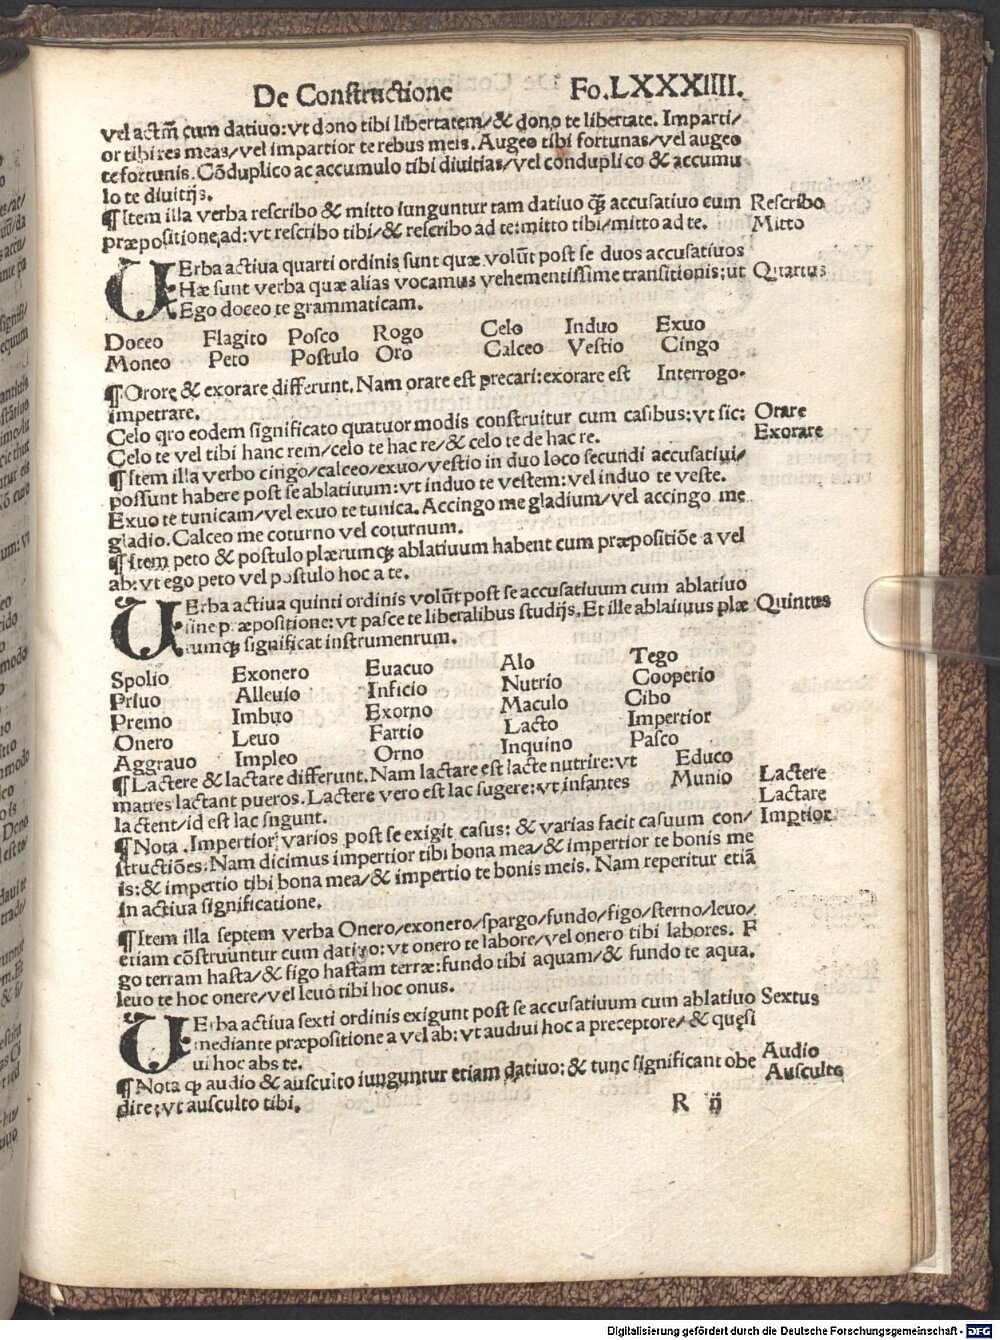 De Constructione Fo.LXXXIIII.
vel actm̃ cum datiuo:vt dono tibi libertatem/& dono te libertate. Imparti/
or tibi res meas/vel impartior te rebus meis. Augeo tibi fortunas/vel augeo
te fortunis. Cõduplico ac accumulo tibi diuitias/vel conduplico & accumu
lo te diuitijs.
¶Item illa verba rescribo & mitto iunguntur tam datiuo q̃ accusatiuo cum Rescribo
præpositione,ad: vt rescribo tibi/& rescribo ad te:mitto tibi/mitto ad te. Mitto
VErba actiua quarti ordinis sunt quæ volũt post se duos accusatiuos
Hæ sunt verba quæ alias vocamus vehementissime transitionis:ut Quartus
Ego doceo te grammaticam.
Doceo Flagito Posco Rogo Celo Induo Exuo
Moneo Peto Postulo Oro Calceo Vestio Cingo
¶Orore & exorare differunt. Nam orare est precari:exorare est Interrogo.
impetrare. Orare
Celo qro eodem significato quatuor modis construitur cum casibus:vt sic: Exorare
Celo te vel tibi hanc rem/celo te hac re/& celo te de hac re.
¶Item illa verbo cingo/calceo/exuo/vestio in duo loco secundi accusatiui/
possunt habere post se ablatiuum:vt induo te vestem:vel induo te veste.
Exuo te tunicam/vel exuo te tunica. Accingo me gladium/vel accingo me
gladio. Calceo me coturno vel coturnum.
¶Item peto & postulo plærumq; ablatiuum habent cum præpositiõe a vel
ab:vt ego peto vel postulo hoc a te.
VErba actiua quinti ordinis volũt post se accusatiuum cum ablatiuo
sine præpositione:vt pasce te liberalibus studijs. Et ille ablatiuus plæ Quintus
rumq; significat instrumenrum.
Spolio Exonero Euacuo Alo Tego
Priuo Alleuio Inficio Nutrio Cooperio
Premo Imbuo Exorno Maculo Cibo
Onero Leuo Fartio Lacto Impertior
Aggrauo Impleo Orno Inquino Pasco
¶Lactere & lactare differunt. Nam lactare est lacte nutrire:vt Educo
matres lactant pueros. Lactere vero est lac sugere:vt infantes Munio Lactere
lactent/id est lac sngunt. Lactare
¶Nota .Impertior varios post se exigit casus: & varias facit casuum con/ Imptior
structiões. Nam dicimus impertior tibi bona mea/& impertior te bonis me
is:& impertio tibi bona mea/& impertio te bonis meis. Nam reperitur etiã
in actiua significatione.
¶Item illa septem verba Onero/exonero/spargo/fundo/figo/sterno/leuo/
etiam cõstruuntur cum datiuo:vt onero te labore/vel onero tibi labores. F
go terram hasta/& figo hastam terræ:fundo tibi aquam/& fundo te aqua.
leuo te hoc onere/vel leuo tibi hoc onus.
VErba actiua sexti ordinis exigunt post se accusatiuum cum ablatiuo Sextus
mediante præpositione a vel ab:vt audiui hoc a preceptore/& quęsi
ui hoc abs te.
¶Nota ꝙ audio & ausculto iunguntur etiam datiuo:& tunc significant obe Audio
dire:vt ausculto tibi. Ausculto
R ij
Digitalisierung gefördert durch die Deutsche Forschungsgemeinschaft - DFG